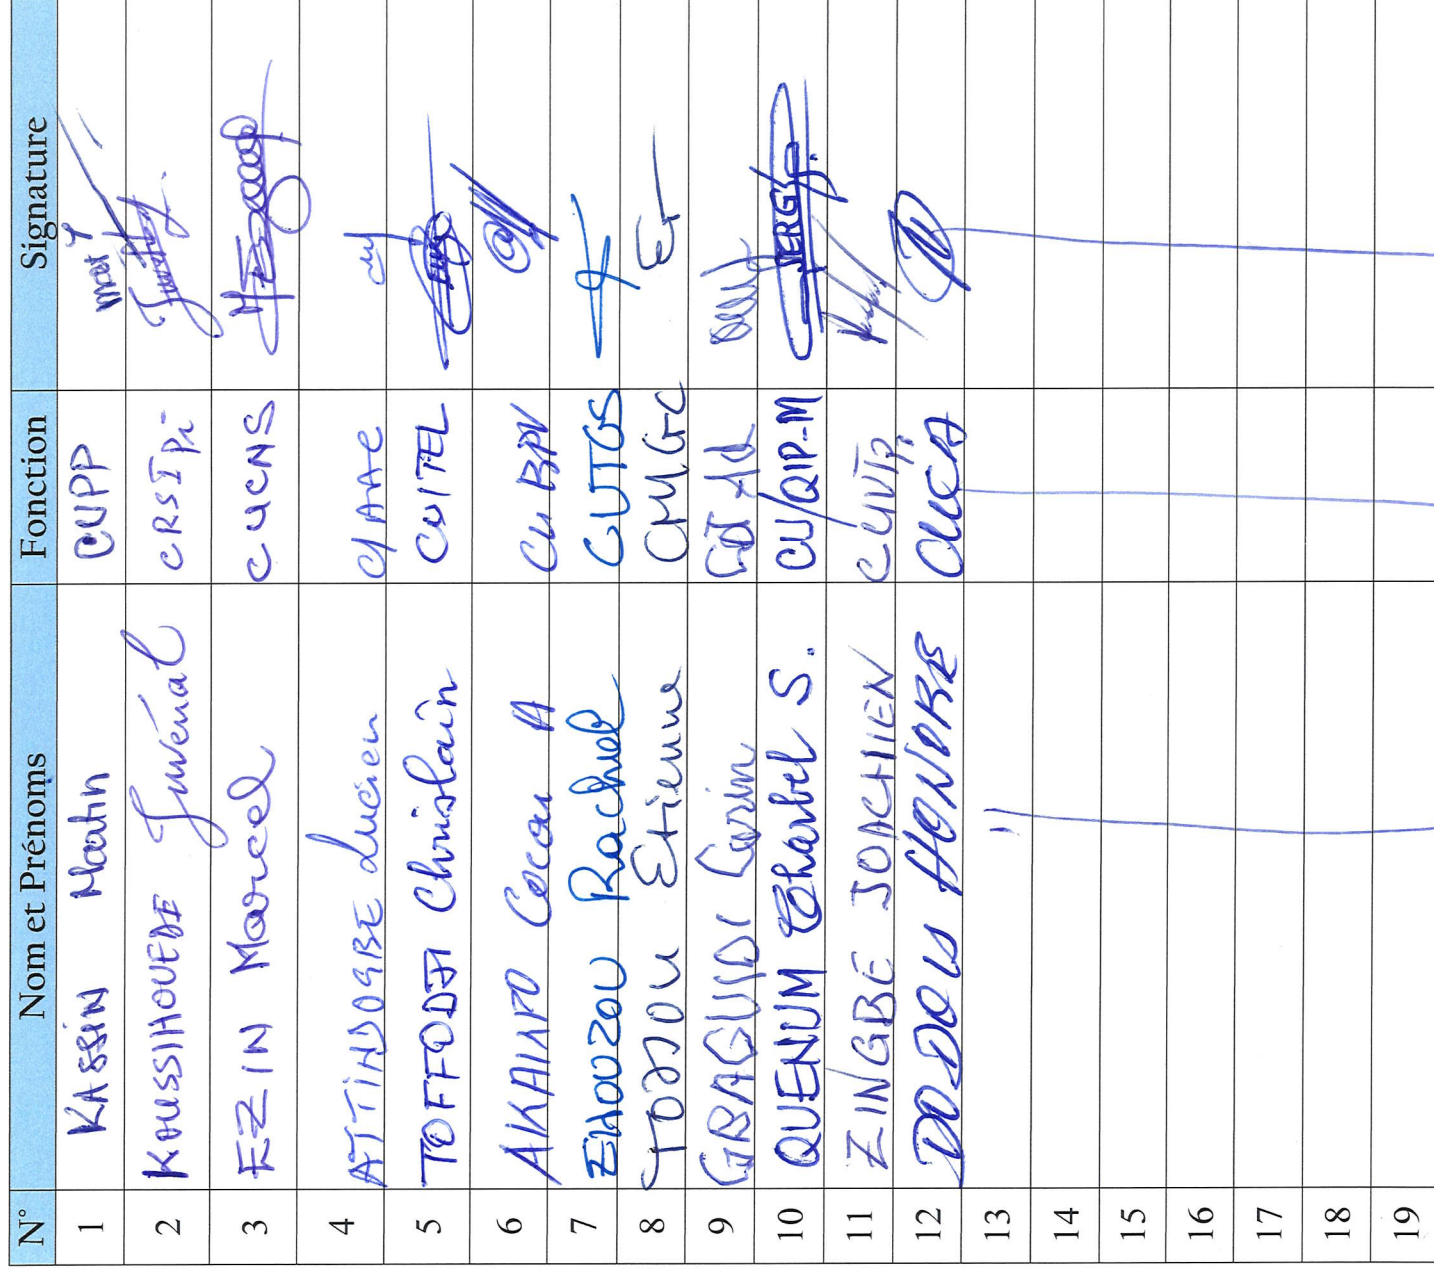 N° Nom et Prénoms Fonction Signature
1 KASSIN Martin CUPP
2 KOUSSIHOUEDE Juvénal CRSIPi
3 EZIN Marcel CUCNS
4 ATTINDOGBE Lucien C/AAE
5 TOFFODJI Christian CUITEL
6 AKAINFO Cocou A CU BPV
7 EHOUZOU Rachel CUTGS
8 TOSSOU Etienne CMGC
9 GBAGUIDI
10 QUENUM Charbel S. CU/QIP-M
11 ZINGBE JOACHIEN CUVTP
12 DODOU HONORE
13
14
15
16
17
18
19